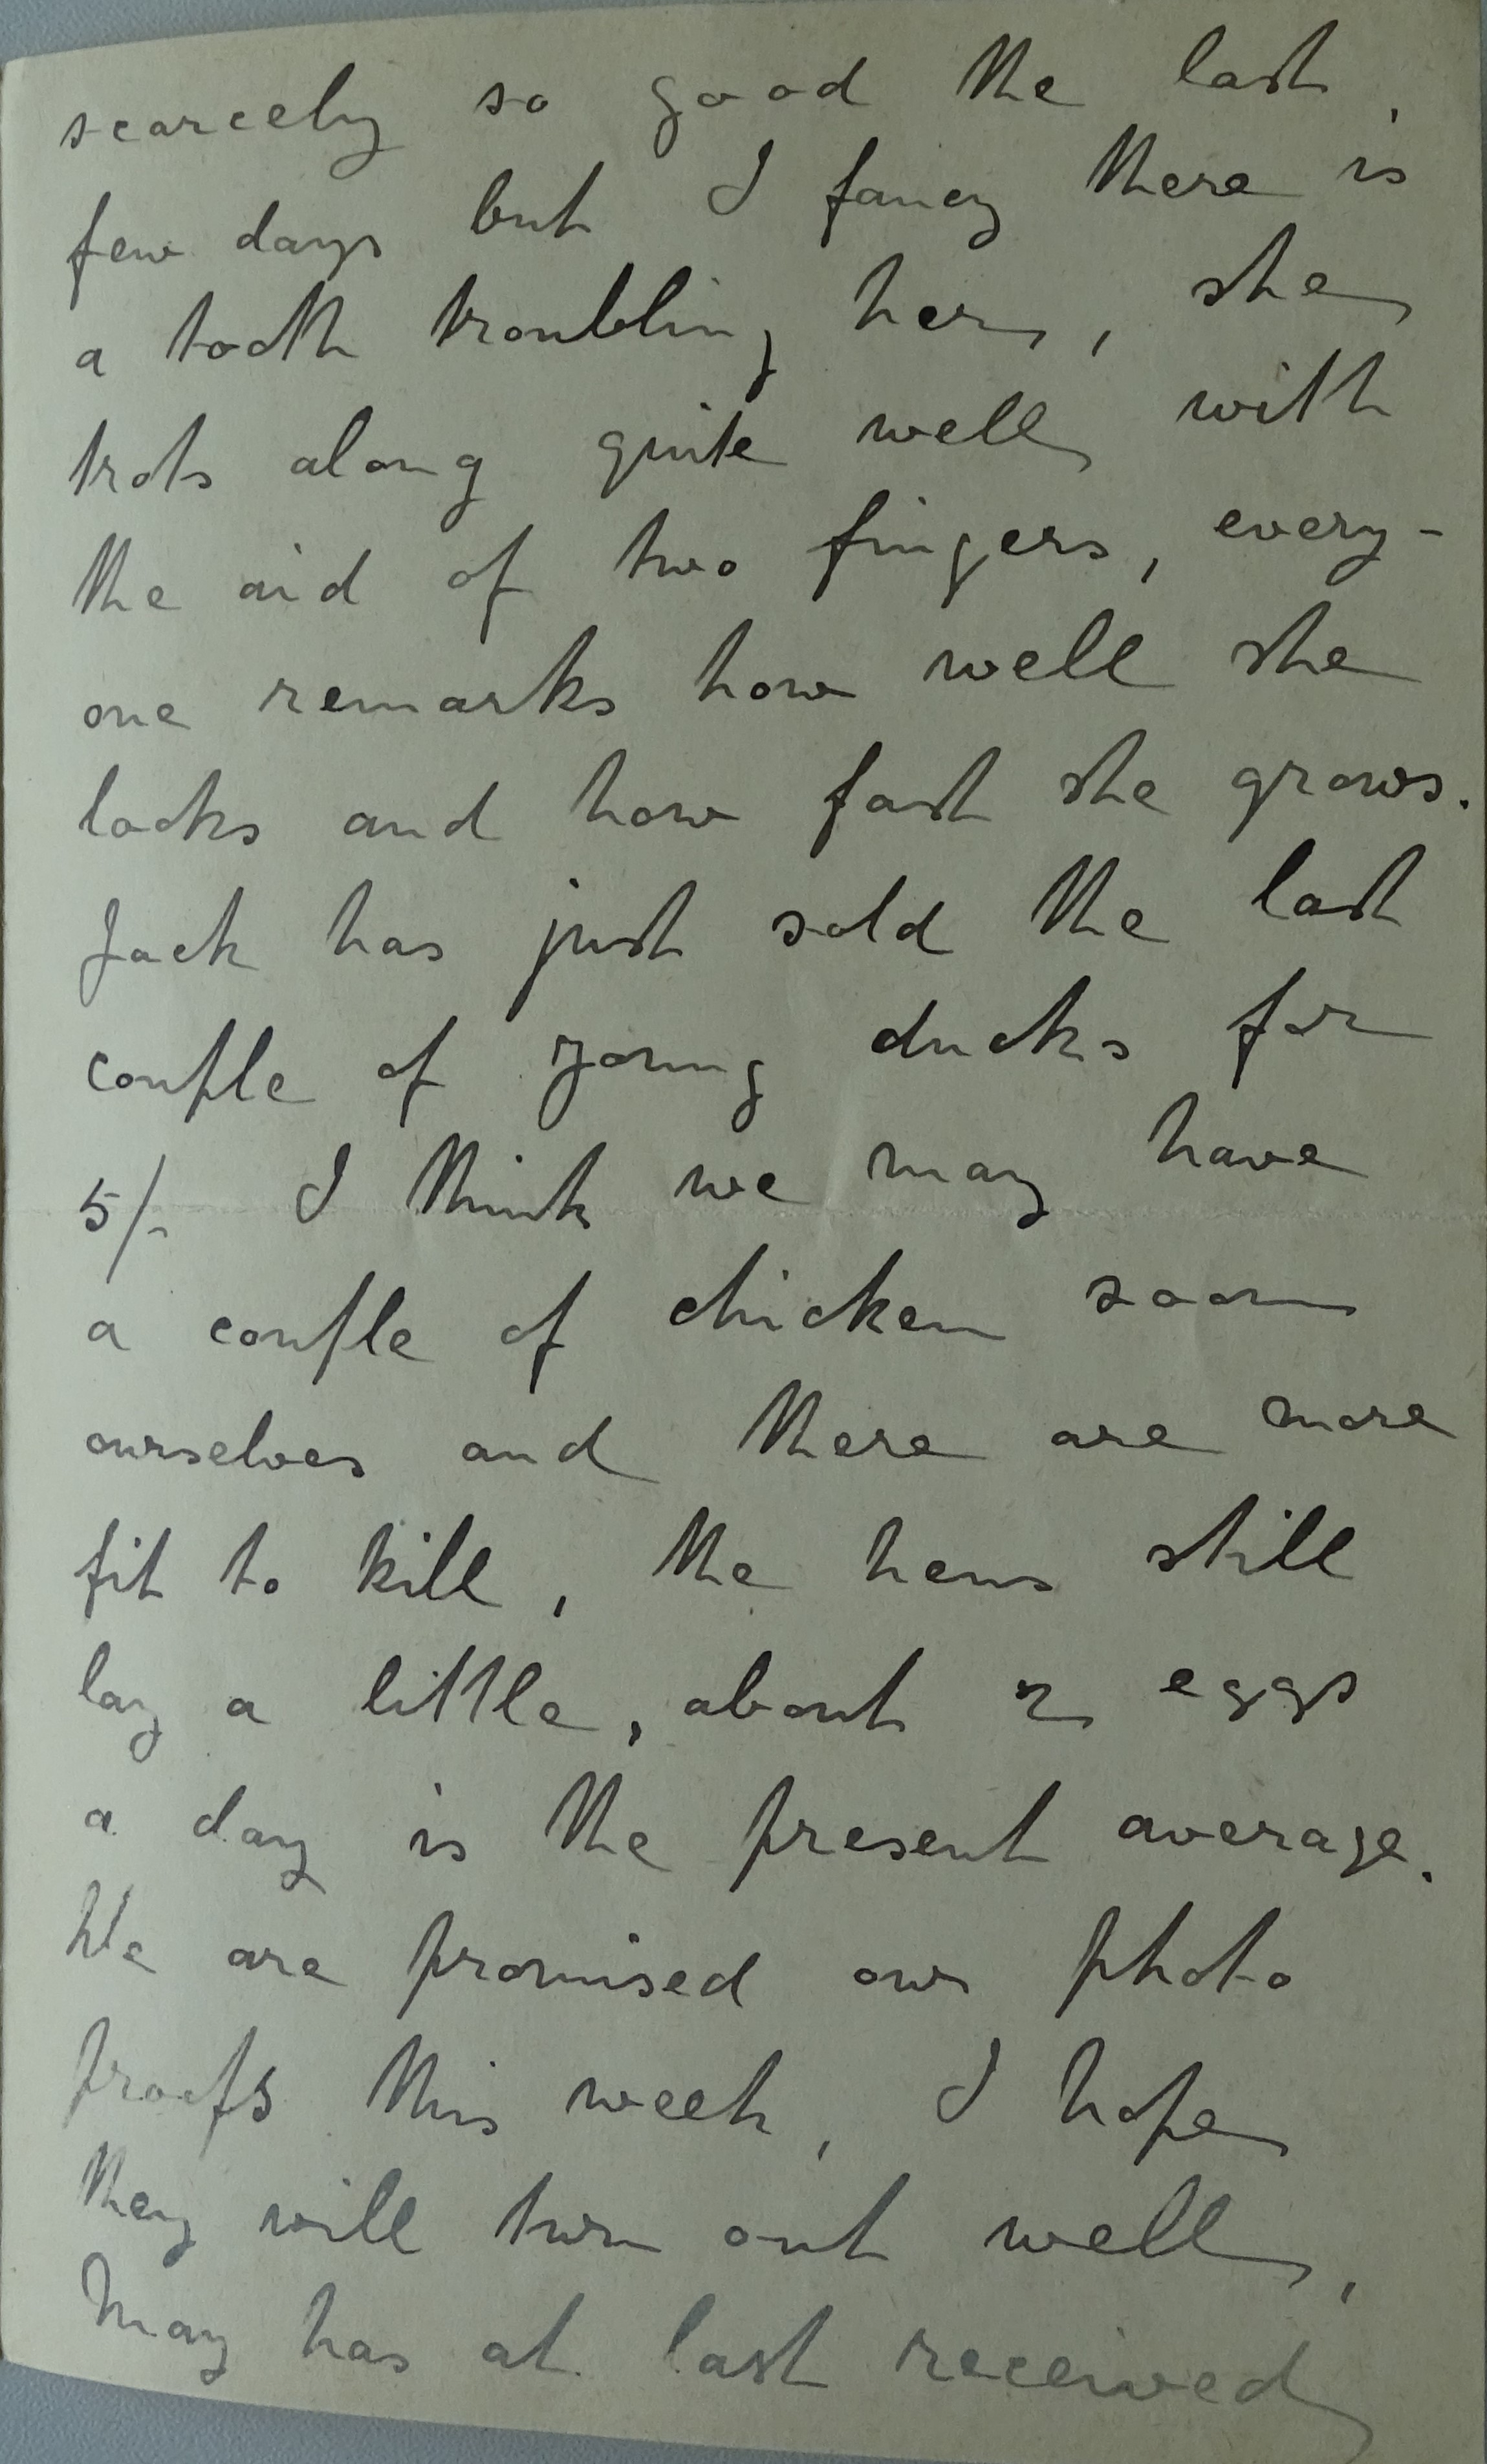 scarcely so good the last
few days but I fancy there is
a tooth troubling her, she
trots along quite well with
the aid of two fingers, every-
one remarks how well she
looks and how fast she grows.
Jack has just sold the last
couple of young ducks for
5/- I think we may have
a couple of chicken soon
ourselves and there are more
fit to kill, the hens still
lay a little, about 2 eggs
a day is the present average.
We are promised our photo
proofs this week, I hope
they will turn out well,
May has at last received